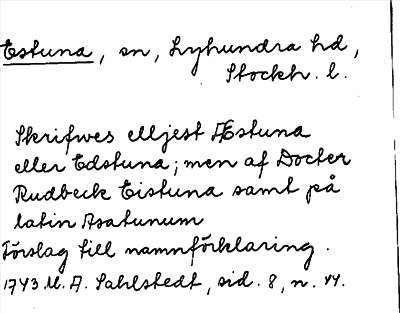 Estuna, sn, Lyhundra hd,
Stockh. l.
Skrifwes elljest Æstuna
eller Edstuna; men af Docter
Rudbeck Eistuna samt på
latin Asatunum
Förslag till namnförklaring.
1743 M. A. Sahlstedt, sid. 8, n. 44.